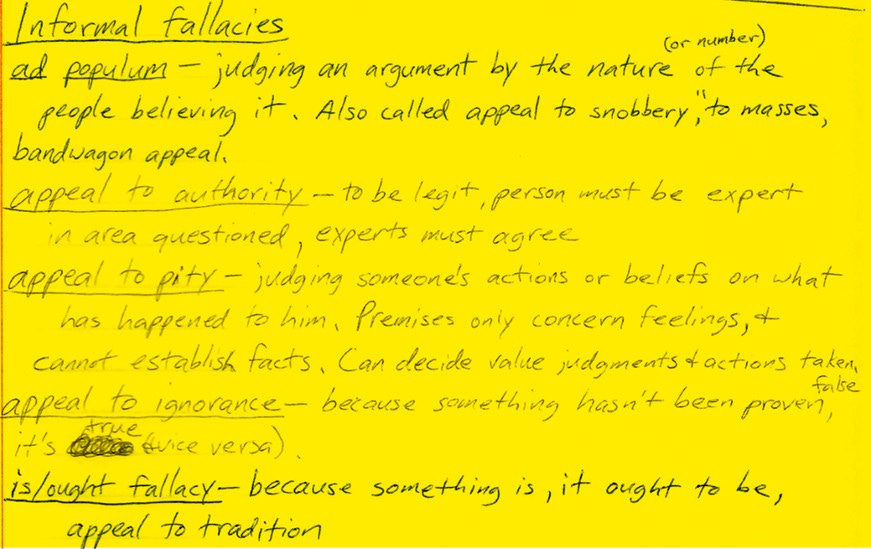 Informal fallacies
(or number)
ad populum – judging an argument by the nature of the
people believing it. Also called appeal to snobbery, " to masses,
bandwagon appeal.
appeal to authority – to be legit, person must be expert
in area questioned, experts must agree
appeal to pity – judging someone's actions or beliefs on what
has happened to him. Premises only concern feelings, &
cannot establish facts. Can decide value judgments & actions taken.
false
appeal to ignorance – because something hasn't been proven,
true
it's (vice versa).
is/ought fallacy – because something is, it ought to be,
appeal to tradition